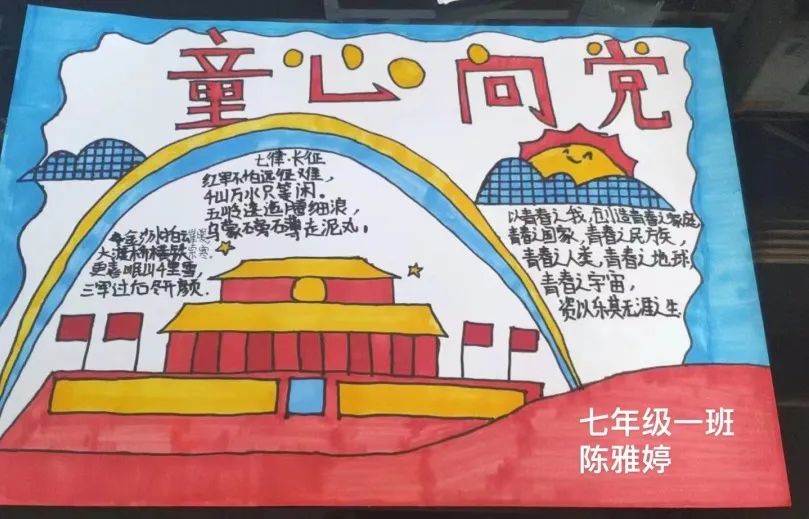 童心向党
七律·长征
红军不怕远征难,
千山万水只等闲。
五岭逶迤腾细浪,
乌蒙磅礴走泥丸。
金沙水拍云崖暖
大渡桥横铁索寒。
更喜岷山千里雪,
三军过后尽开颜.
以青春之我,创造青春之家庭
青春之国家,青春之民族,
青春之人类,青春之地球,
青春之宇宙,
资以乐其无涯之生.
七年级一班
陈雅婷